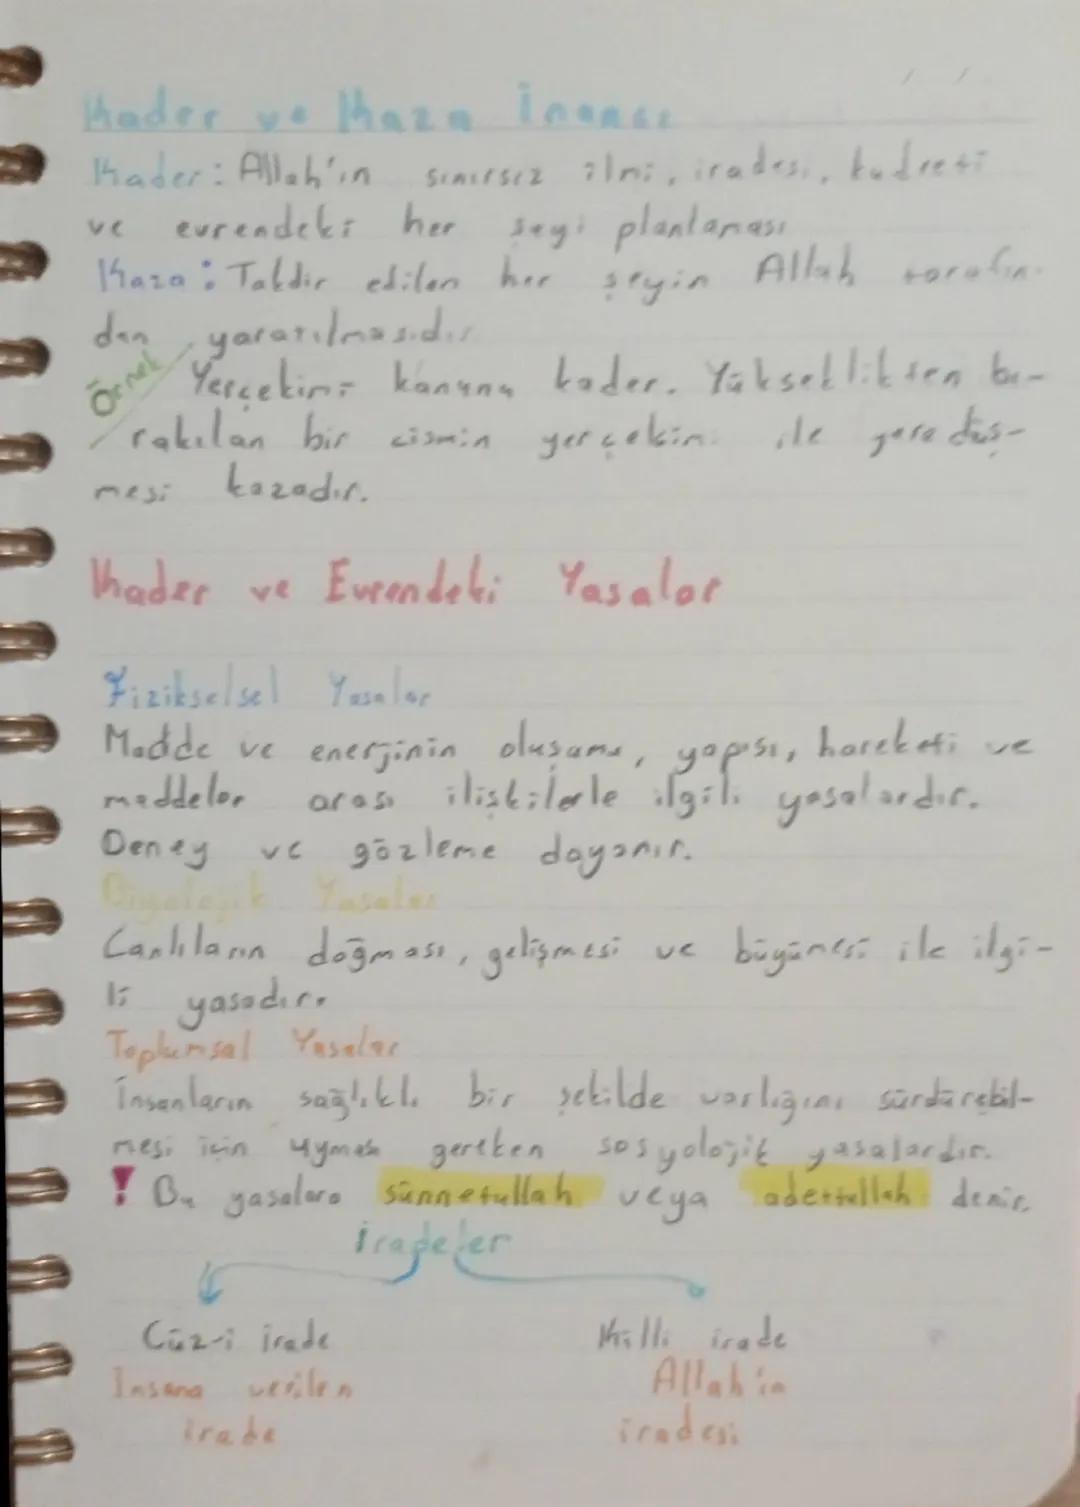 Kader ve Kaza İnancı
Kader: Allah'ın sınırsız ilmi, iradesi, kudreti
ve evrendeki her şeyi planlaması
Kaza: Takdir edilen her şeyin Allah tarafın-
dan yaratılmasıdır
Örnek
Yerçekimi kanunu kader. Yükseklikten bı-
rakılan bir cismin yerçekimi ile yere düş-
mesi kazadır.
Kader ve Evrendeki Yasalar
Fizikselsel Yasalar
Madde ve enerjinin oluşumu, yapısı, hareketi ve
maddeler arası ilişkilerle ilgili yasalardır.
Deney ve gözleme dayanır.
Biyolojik Yasalar
Canlıların doğması, gelişmesi ve büyümesi ile ilgi-
li yasadır.
Toplumsal Yasalar
İnsanların sağlıklı bir şekilde varlığını sürdürebil-
mesi için uyması gereken sosyolojik yasalardır.
! Bu yasalara sünnetullah veya adettullah denir.
İradeler
Cüz-i irade Külli irade
İnsana verilen Allah'ın
irade iradesi